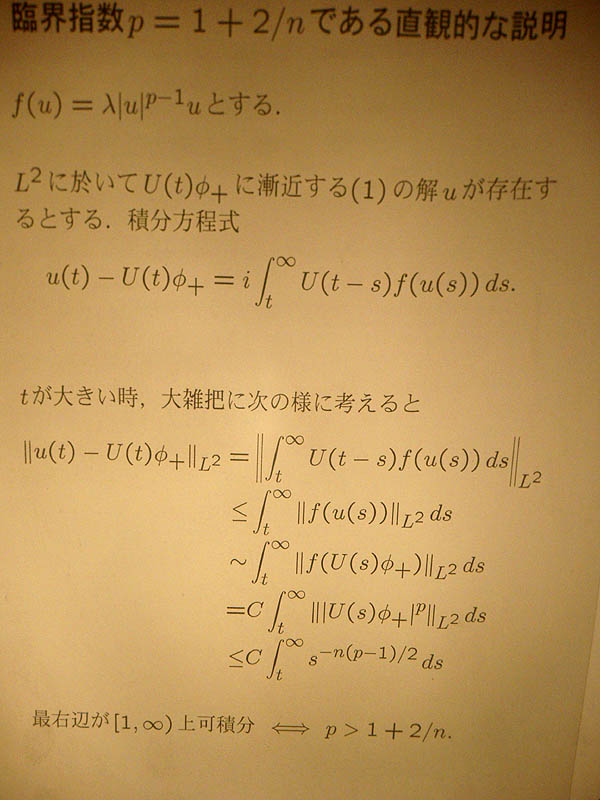 臨界指数p = 1 + 2/nである直観的な説明
f(u) = λ|u|^{p−1}uとする.
L^2に於いてU(t)ϕ_+に漸近する(1)の解uが存在す
るとする. 積分方程式
u(t) − U(t)ϕ_+ = i∫_t^∞ U(t − s)f(u(s)) ds.
tが大きい時, 大雑把に次の様に考えると
‖u(t) − U(t)ϕ_+‖_{L^2} = ‖∫_t^∞ U(t − s)f(u(s)) ds‖_{L^2}
≤ ∫_t^∞ ‖f(u(s))‖_{L^2} ds
∼ ∫_t^∞ ‖f(U(s)ϕ_+)‖_{L^2} ds
=C ∫_t^∞ ‖|U(s)ϕ_+|^p‖_{L^2} ds
≤C ∫_t^∞ s^{−n(p−1)/2} ds
最右辺が[1, ∞)上可積分 ⟺ p > 1 + 2/n.